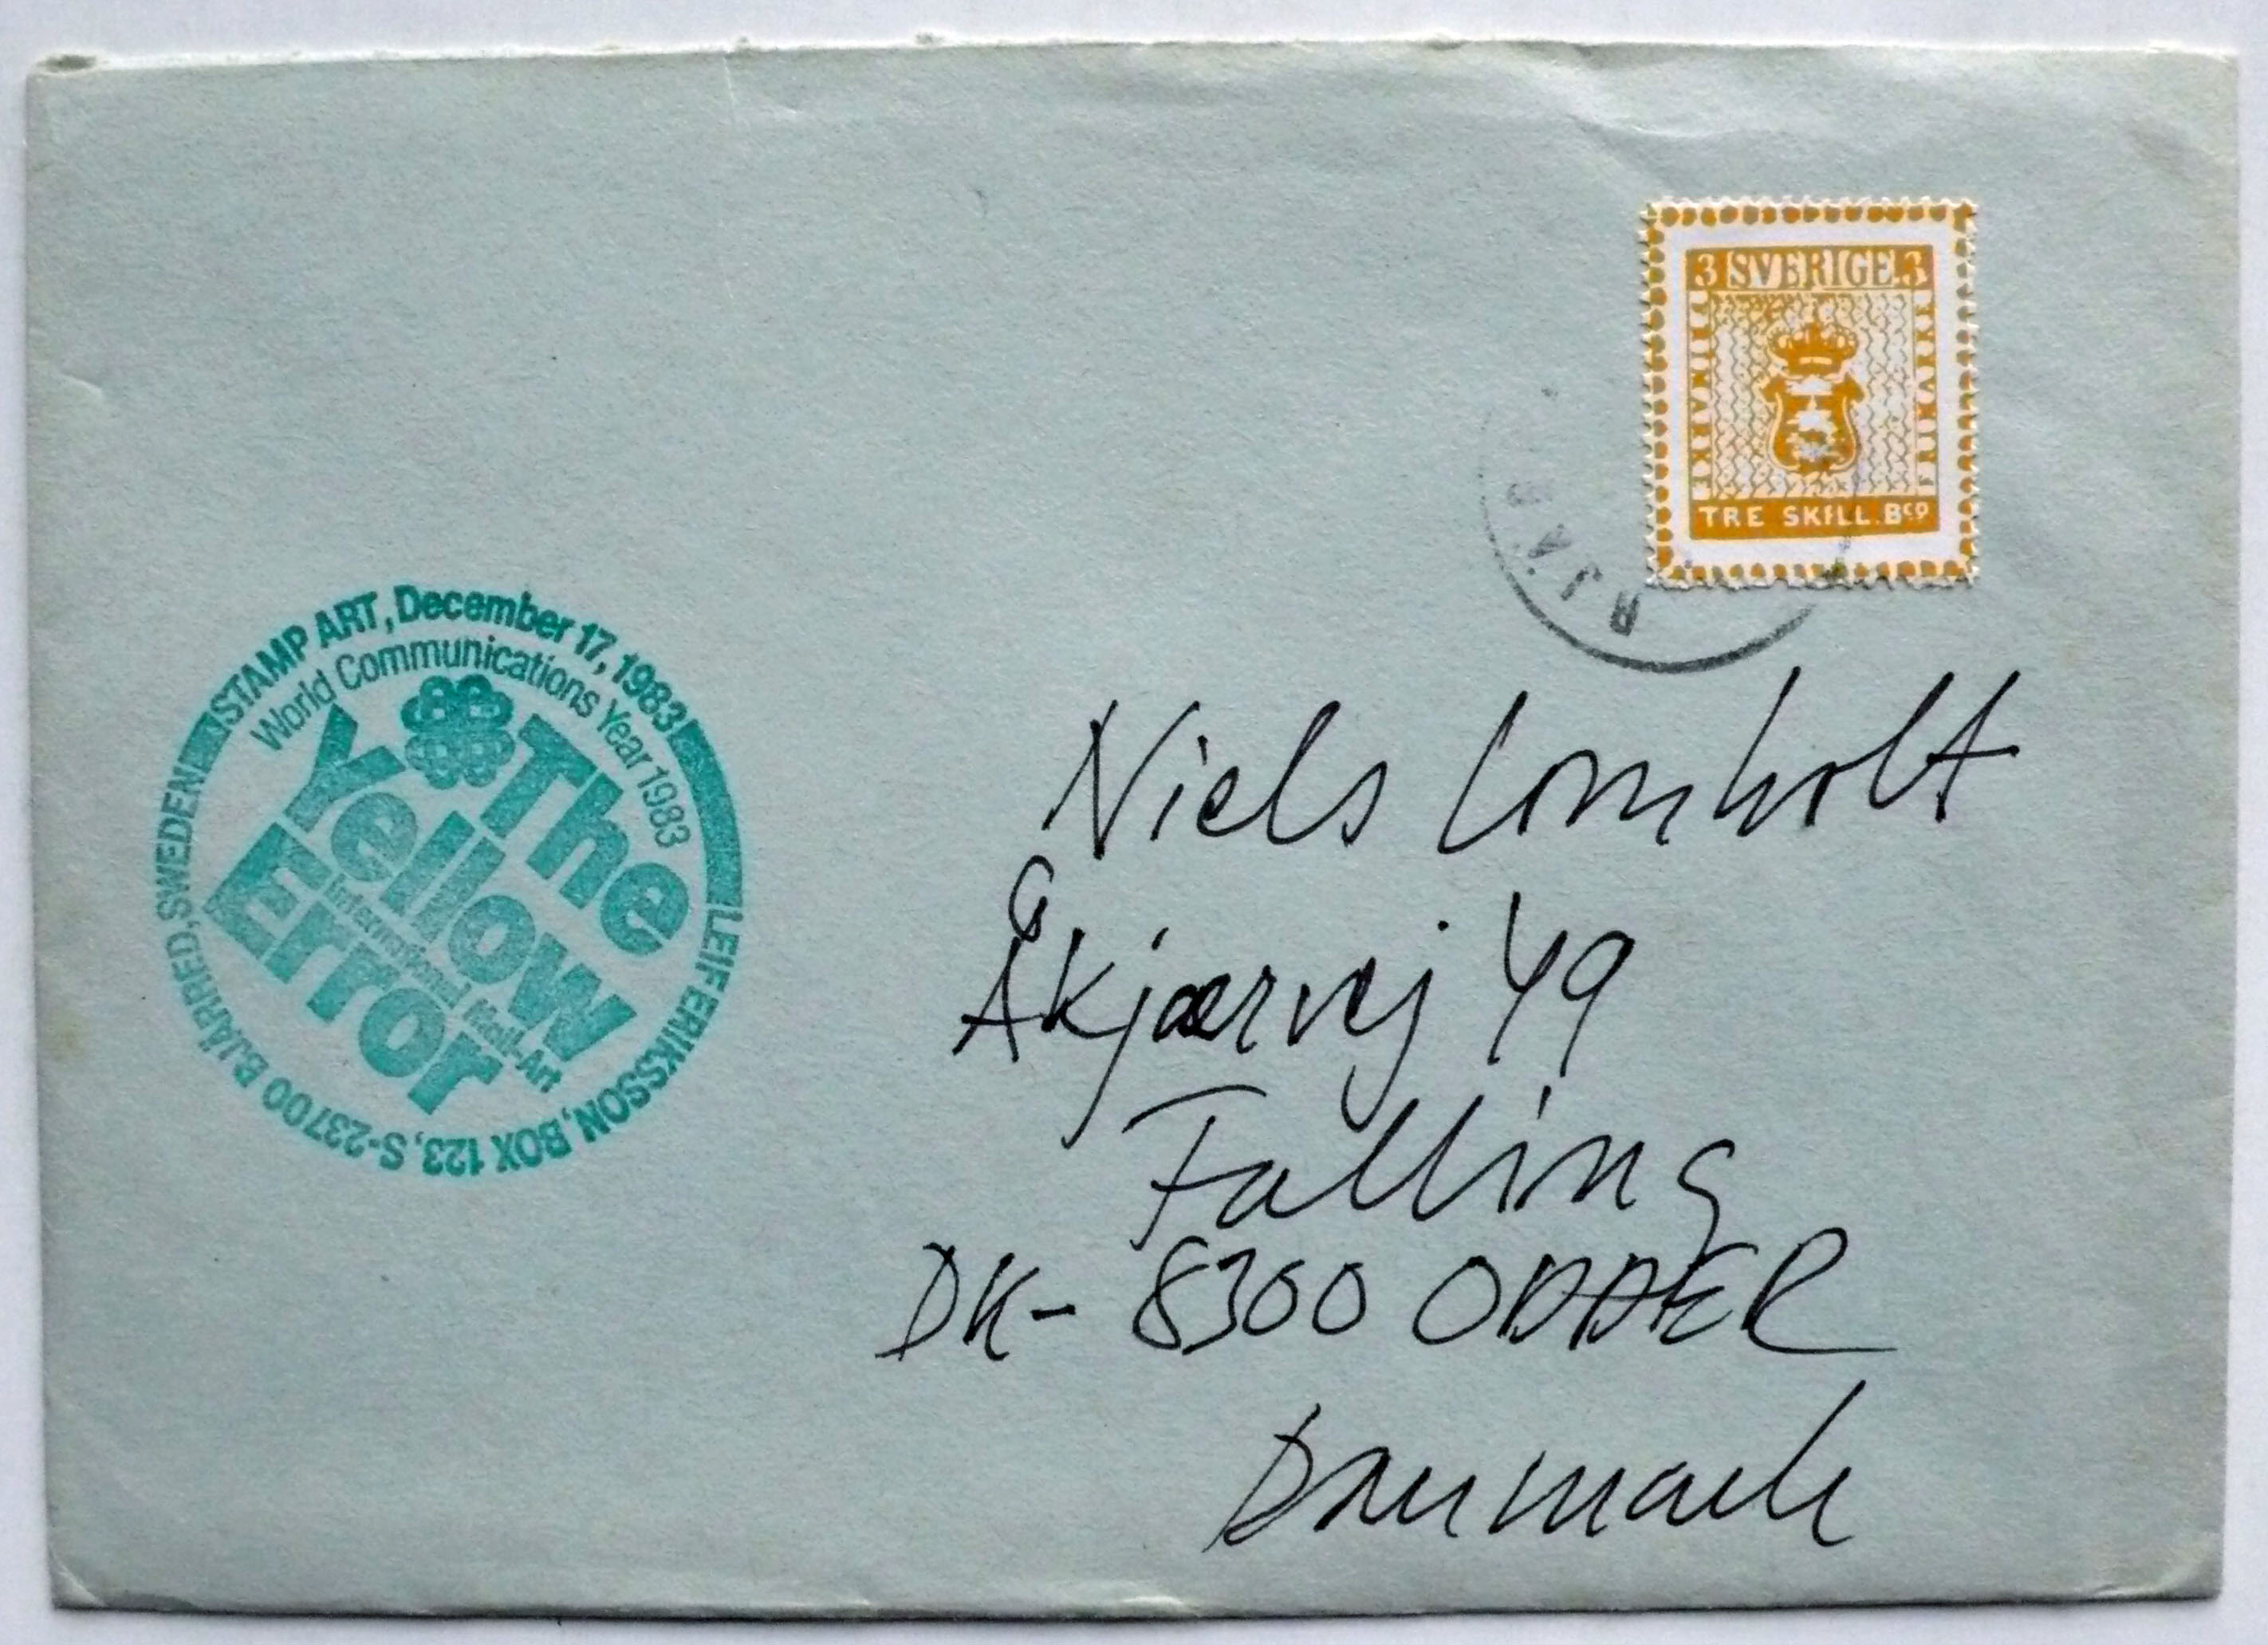 STAMP ART, December 17, 1983
World Communications Year 1983
The
Yellow
Error
International Mail-Art
LEIF ERIKSSON, BOX 123, S-23700 BJÄRRED, SWEDEN
3 SVERIGE 3
FRIMÄRKE
TRE SKILL. Bco
BJÄR
Niels Lomholt
Åkjærvej 49
Falling
DK-8300 ODDER
Danmark